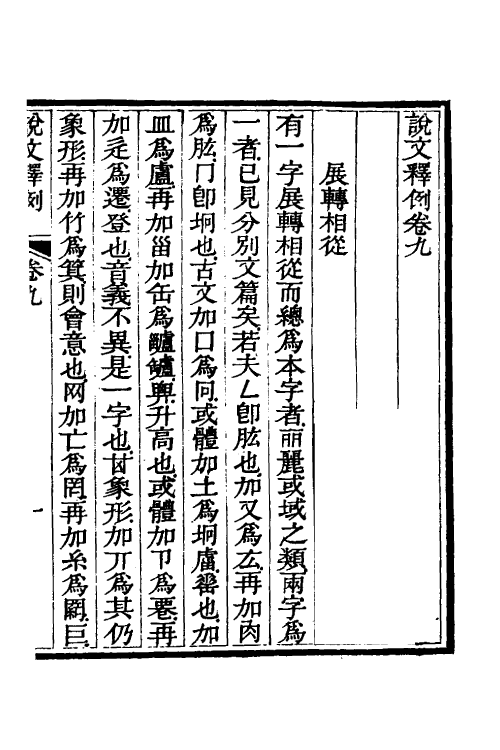 說文釋例卷九
展轉相從
有一字展轉相從而總爲本字者丽麗或域之類兩字爲
一者已見分別文篇矣若夫𠃋卽肱也加又爲厷再加肉
爲肱冂卽坰也古文加口爲冋或體加土爲坰𧆨罍也加
皿爲盧再加甾加缶爲𤮧罏𦥑升高也或體加卪爲𢍱再
加辵爲遷登也音義不異是一字也𠀠象形加丌爲其仍
象形再加竹爲箕則會意也网加亡爲罔再加糸爲䋞巨
說文釋例
卷九
一